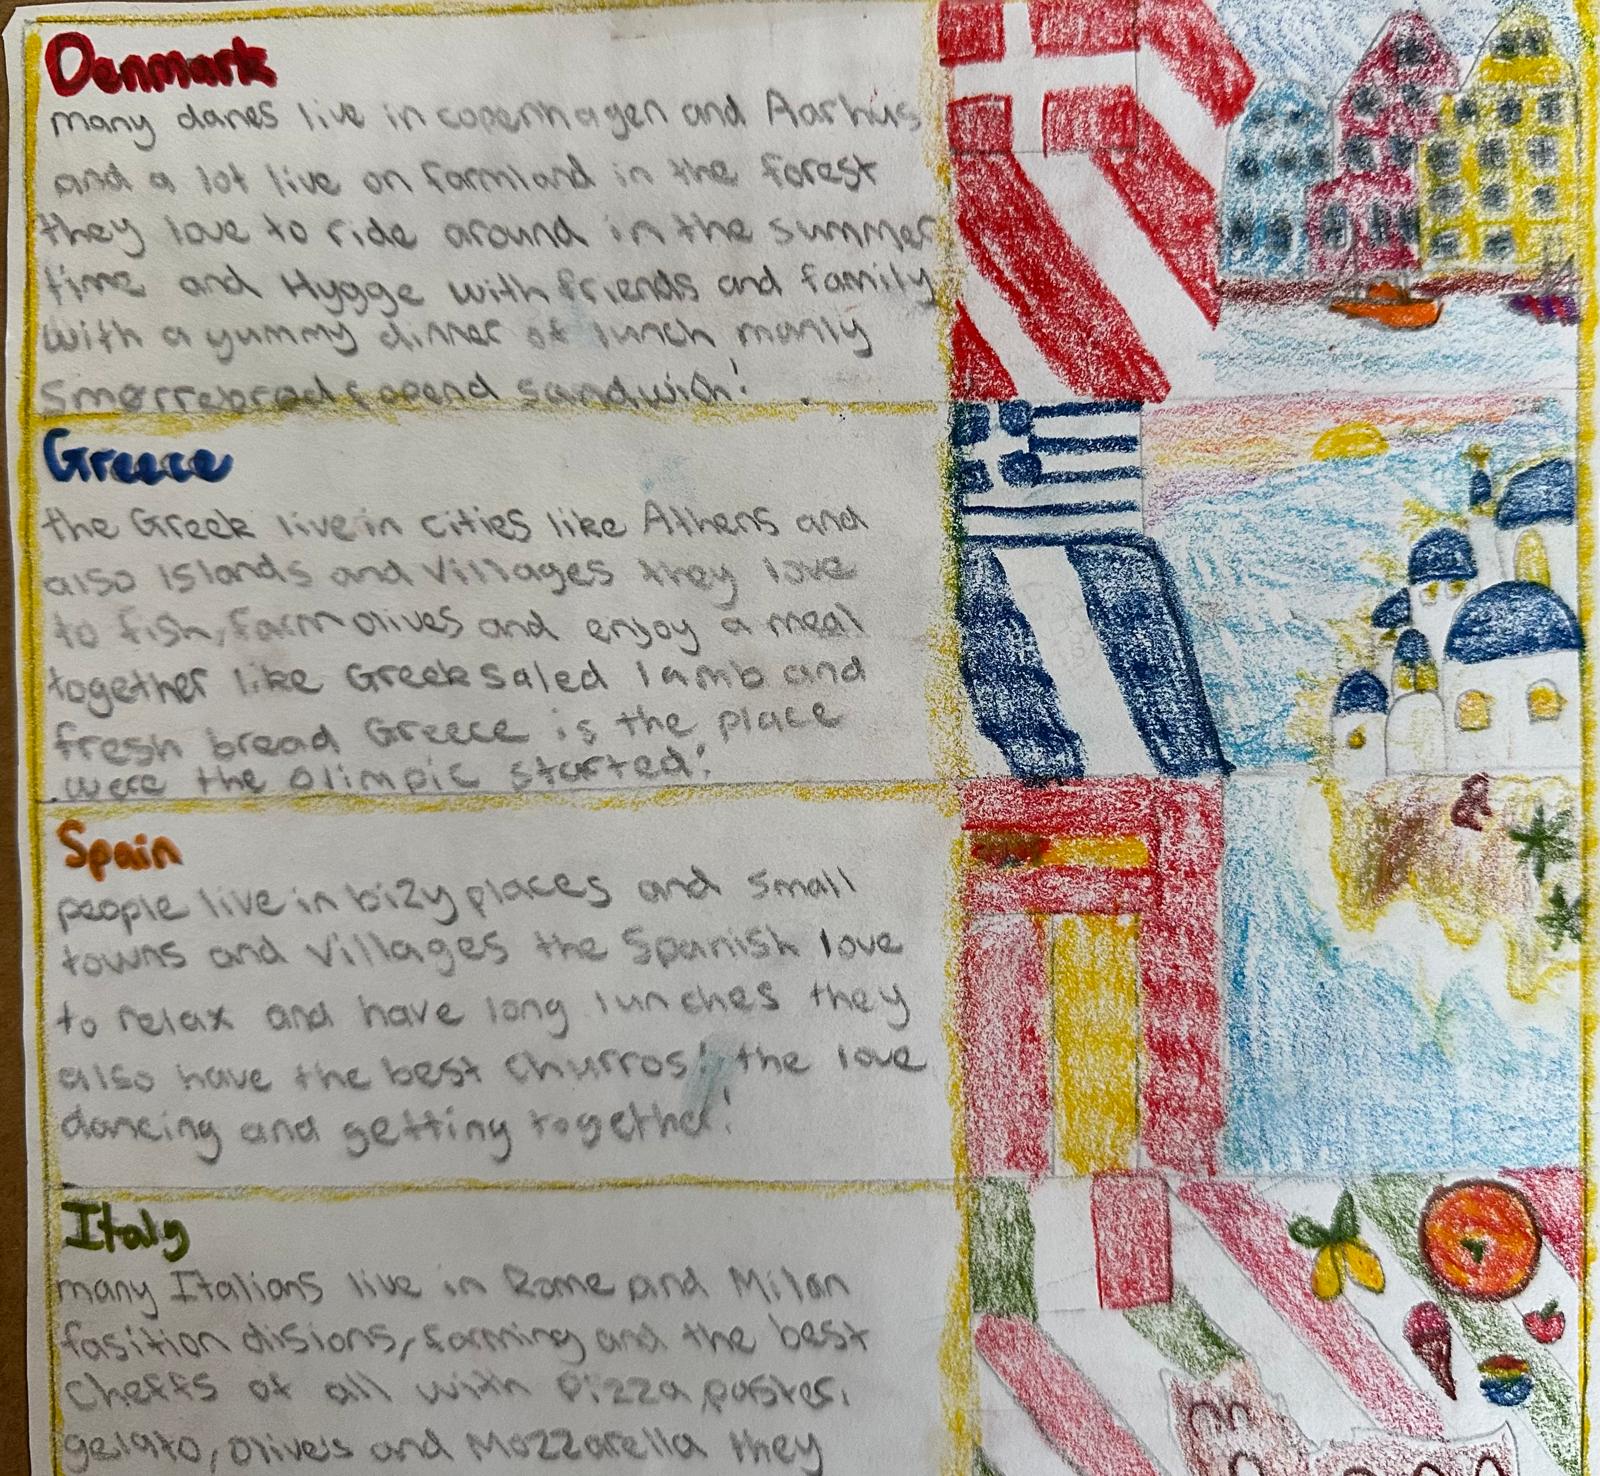 Denmark
many danes live in copenhagen and Aarhus
and a lot live on farmland in the forest
they love to ride around in the summer
time and Hygge with friends and family
with a yummy dinner of lunch manly
Smørrebrød & opend sandwish!
Greece
the Greek live in cities like Athens and
also Islands and Villages they love
to fish, farm olives and enjoy a meal
together like Greek saled lamb and
fresh bread Greece is the place
were the olimpic started!
Spain
people live in bizy places and small
towns and villages the Spanish love
to relax and have long lunches they
also have the best churros! the love
dancing and getting together!
Italy
many Italians live in Rome and Milan
fasition disions, farming and the best
cheffs of all with Pizza, pastes,
gelato, olives and Mozzarella they